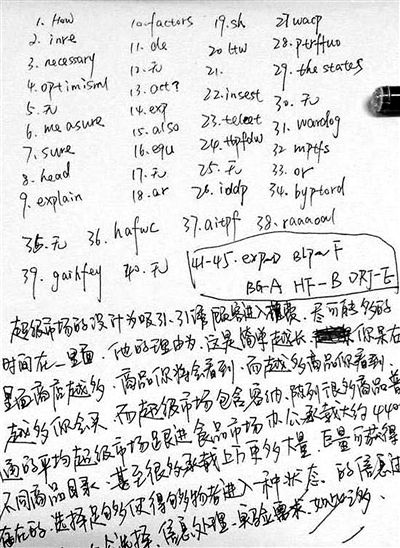 1. How 10. factors 19. sh 27 wacp
2. inre 11. de 20 ltw 28. ptrffwo
3. necessary 12. 无 21. 29. the states
4. optimisml 13. act? 22. insest 30. 无
5. 无 14. exp 23. teleet 31. wardog
6. measure 15. also 24. 32 mptfs
7. sure 16. equ 25. 无 33. or
8. head 17. 无 26. iddp 34. byptord
9. explain 18. ar
35. 无 36. hafwc 37. aitpf 38. raaaoal
39. 40. 无 41-45. F
BG-A HF-B DRJ-E
超级市场的设计为吸引引诱顾客进入 尽可能多的
时间在一里面. 他的理由为. 这是简单越长 你呆在
里面商店越多. 商品你将会看到. 而越多商品你看到.
越多你会买. 而超级市场包含容纳. 陈列很多商品普
通的平均超级市场 进食品市场 承载大约 440
不同商品目录. 甚至很多承载上万更多大量. 巨量可获得
存在的选择足够使得 购物者进入一种状态. 的信息过
选择. 信息处理 需求. 如此之多.